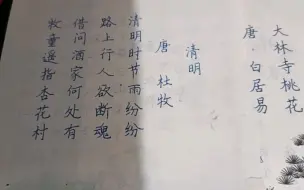 大林寺桃花
唐·白居易
清明
唐 杜牧
清明时节雨纷纷
路上行人欲断魂
借问酒家何处有
牧童遥指杏花村